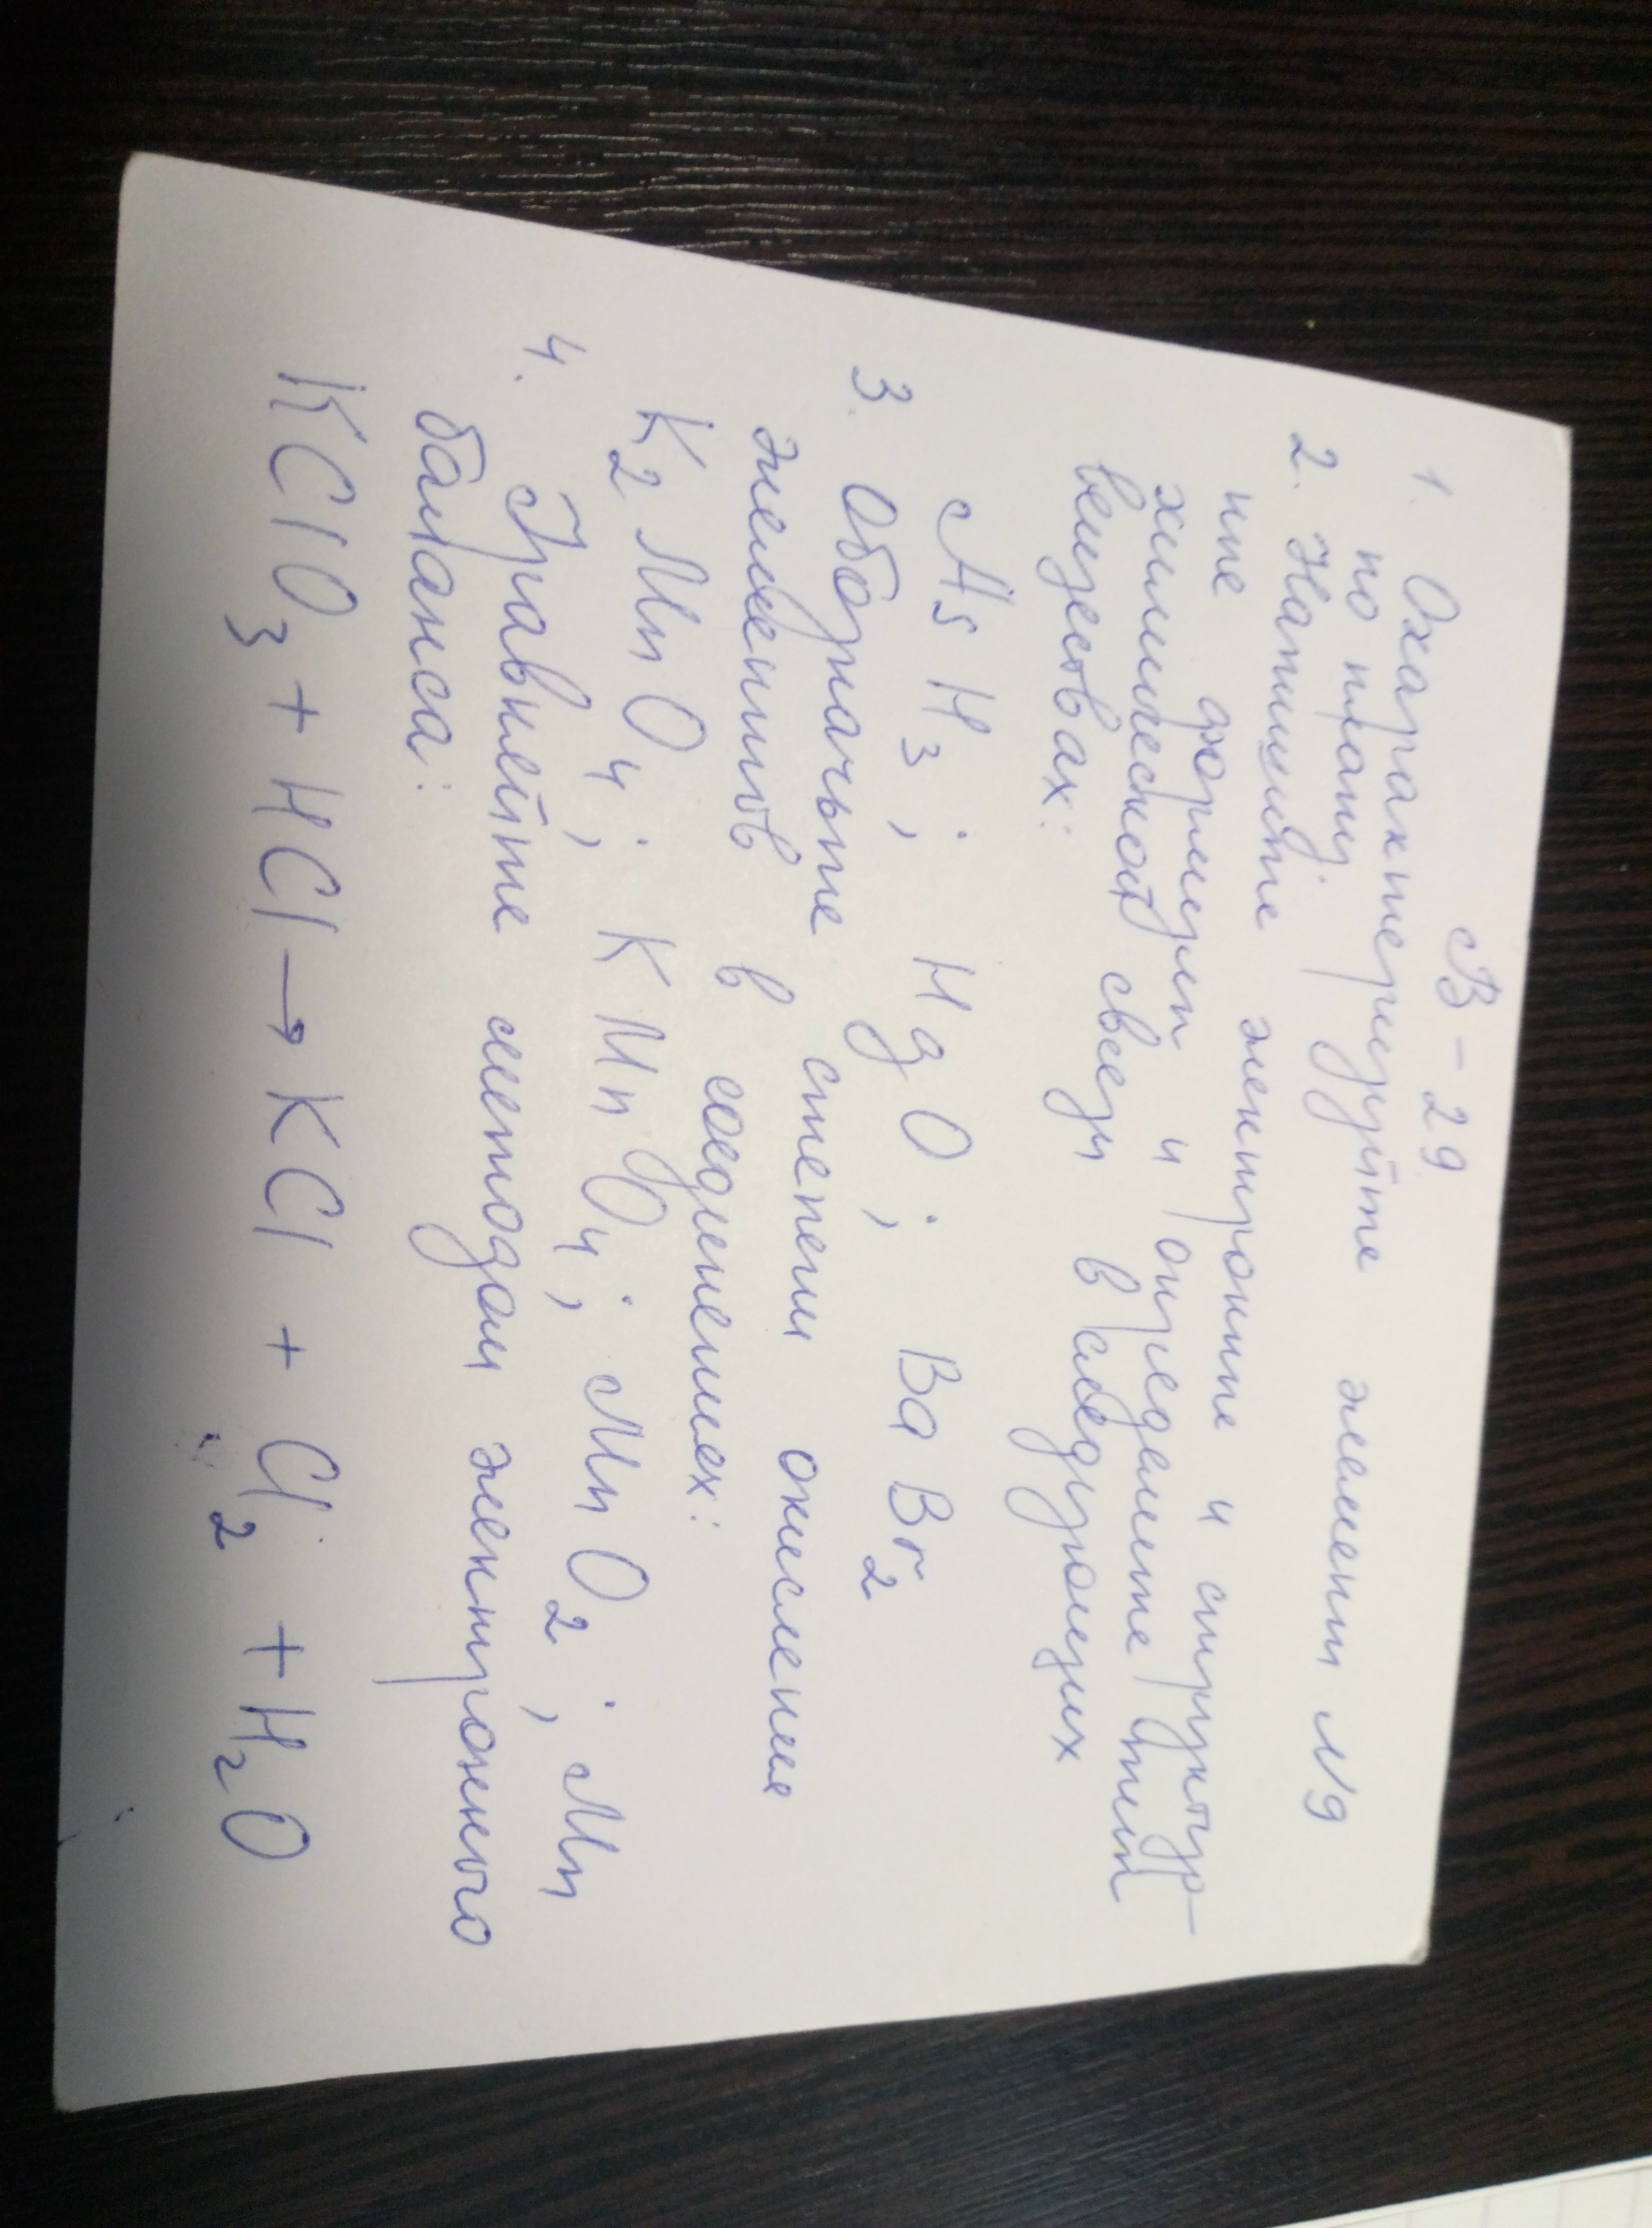 В - 29
1. Охарактеризуйте элемент №9
по плану.
2. Напишите электронные и структур-
ные формулы и определите тип
химической связи в следующих
веществах:
AsH3; HgO; BaBr2
3. Обозначьте степени окисления
элементов в соединениях:
K2MnO4; KMnO4; MnO2; Mn
4. Уравняйте методом электронного
баланса:
KClO3 + HCl → KCl + Cl2 + H2O